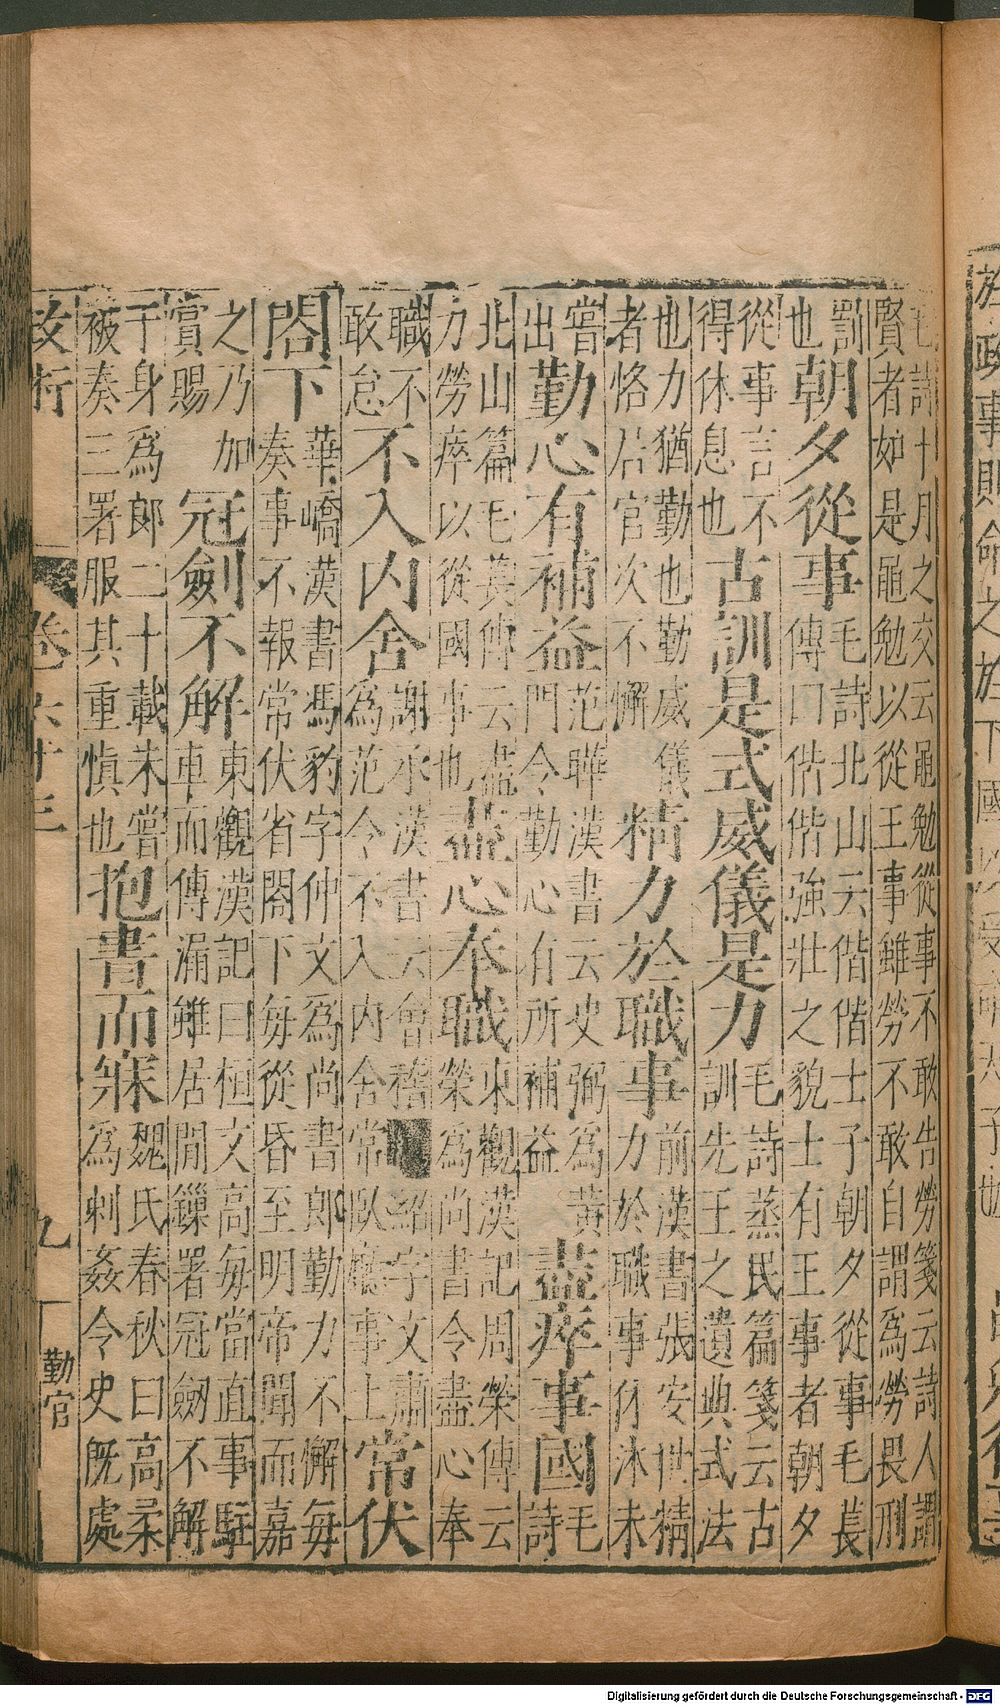 於政事則命之於下國
毛詩十月之交云黽勉從事不敢告勞箋云詩人謂
賢者如是黽勉以從王事雖勞不敢自謂爲勞畏刑
罰也朝夕從事毛詩北山云偕偕士子朝夕從事毛萇
傳曰偕偕強壯之貌士有王事者朝夕
從事言不得休息也古訓是式威儀是力毛詩蒸民篇箋云古
訓先王之遺典式法
也力猶勤也勤威儀者恪居官次不懈精力於職事前漢書張安世精
力於職事休沐未
嘗出勤心有補益范曄漢書云史弼爲黃
門令勤心有所補益盡瘁事國毛詩
北山篇毛萇傳云盡
力勞瘁以從國事也盡心奉職東觀漢記周榮傳云
榮爲尚書令盡心奉
職不敢怠不入內舍謝承漢書云會稽紹字文肅
爲范令不入內舍常臥廳事上常伏
閤下華嶠漢書馮豹字仲文爲尚書郎勤力不懈每
奏事不報常伏省閤下每從昏至明帝聞而嘉
之乃加賞賜冠劍不解東觀漢記曰桓文高每當直事駐
車而傳漏雖居閒鏁署冠劒不解
于身爲郎二十載未嘗
被奏三署服其重慎也抱書而寐魏氏春秋曰高柔
爲刺姦令史既處
政術
卷十三
九
勤官
Digitalisierung gefördert durch die Deutsche Forschungsgemeinschaft - DFG